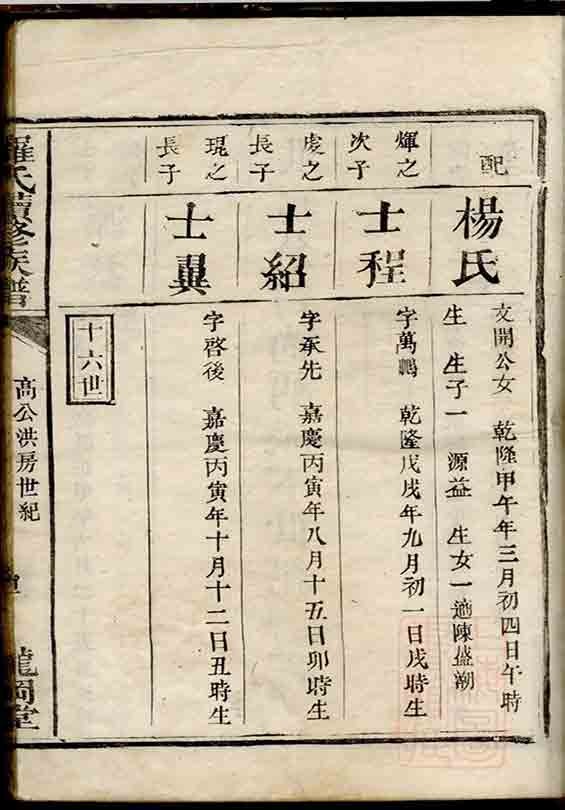 配
楊氏
文開公女 乾隆甲午年三月初四日午時
生 生子一 源益 生女一適陳盛潮
煇之
次子
士程
字萬鵬 乾隆戊戌年九月初一日戌時生
虔之
長子
士紹
字承先 嘉慶丙寅年八月十五日卯時生
琨之
長子
士異
字啓後 嘉慶丙寅年十月十二日丑時生
十六世
羅氏續修族譜
高公洪房世紀
龍岡堂